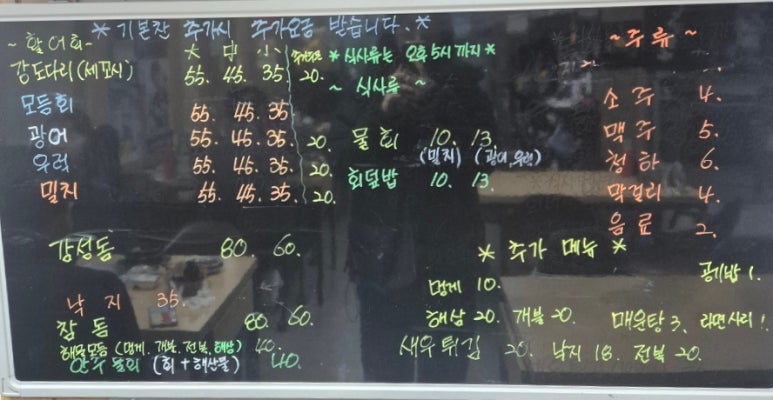 * 기본찬 추가시 추가요금 받습니다. *
~ 활어회 ~
大 中 小
강도다리(세꼬시) 55. 45. 35. 20.
모듬회 55. 45. 35.
광어 55. 45. 35. 20.
우럭 55. 45. 35. 20.
밀치 55. 45. 35. 20.
감성돔 80. 60.
낙지 35.
참돔 80. 60.
해물모듬 (멍게. 개불. 전복. 해삼) 40.
안주물회 (회+해산물) 40.
* 식사류는 오후 5시 까지 *
~ 식사류 ~
물회 10. 13.
(밀치) (광어, 우럭)
회덮밥 10. 13.
~ 주류 ~
소주 4.
맥주 5.
청하 6.
막걸리 4.
음료 2.
* 추가 메뉴 *
공기밥 1.
멍게 10.
해삼 20. 개불 20. 매운탕 3. 라면사리 1.
새우튀김 20. 낙지 18. 전복 20.